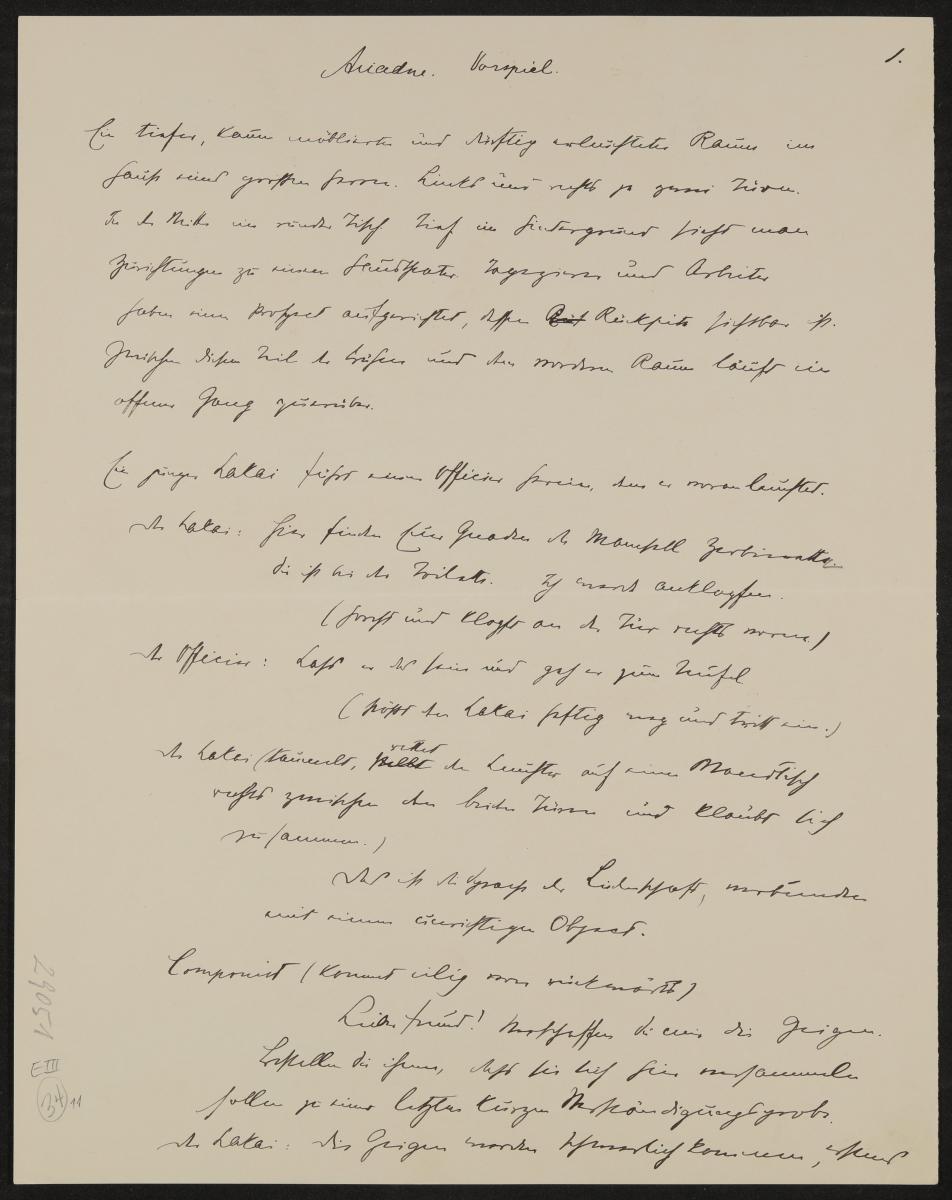 1.
Ariadne. Vorspiel.
Ein tiefer, kaum möblierter und dürftig erleuchteter Raum im
Hause eines großen Herrn. Links und rechts je zwei Türen.
In der Mitte ein runder Tisch. Tief im Hintergrund sieht man
Zurichtungen zu einem Haustheater. Tapezierer und Arbeiter
haben einen Prospect aufgerichtet, dessen Rückseite sichtbar ist.
Zwischen diesem Teil der Bühne und dem vorderen Raum läuft ein
offener Gang querüber.
Ein junger Lakai führt einen Officier herein, dem er voranleuchtet.
der Lakai: Hier finden Euer Gnaden die Mamsell Zerbinetta.
Sie ist bei der Toilette. Ich werde anklopfen.
(horcht und klopft an der Tür rechts vorne.)
der Officier: Lass er das sein und geh er zum Teufel.
(stößt den Lakai heftig weg und tritt ein.)
der Lakai (taumelt, rettet den Leuchter auf einen Wandtisch
rechts zwischen den beiden Türen und klaubt sich
zusammen.)
Das ist die Sprache der Leidenschaft, verbunden
mit einem unrichtigen Object.
Componist (kommt eilig von rückwärts)
Lieber Freund! Verschaffen Sie mir die Geigen.
Bestellen Sie ihnen, dass sie sich hier versammeln
sollen zu einer letzten kurzen Verständigungsprobe.
der Lakai: Die Geigen werden schwerlich kommen, erstens
29051
E III
34 11